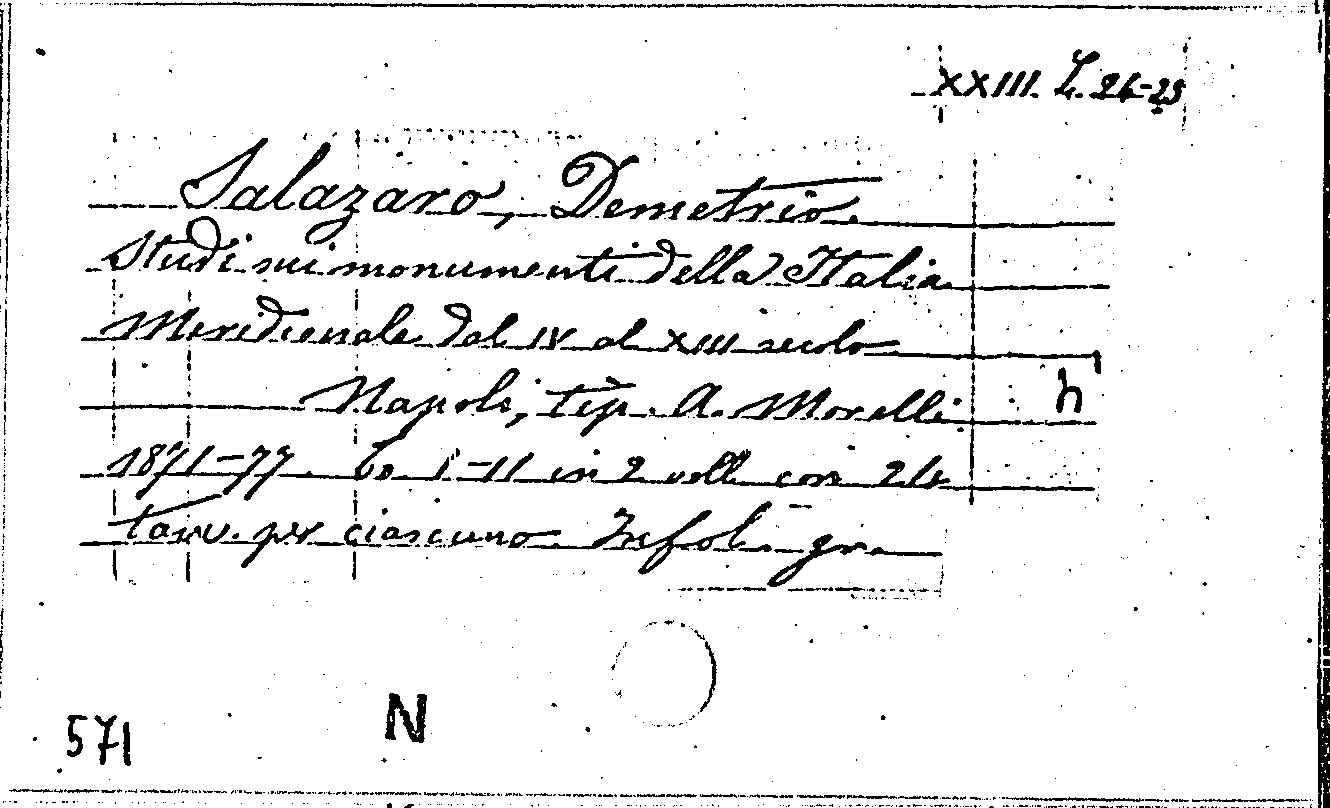 XXIII. L. 24-25
Salazaro, Demetrio.
Studi sui monumenti della Italia
Meridionale dal IV al XIII secolo
Napoli, tip. A. Morelli
h
1871-77. To. I-II in 2 voll. con 24
tavv. per ciascuno. In fol. gr.
571
N